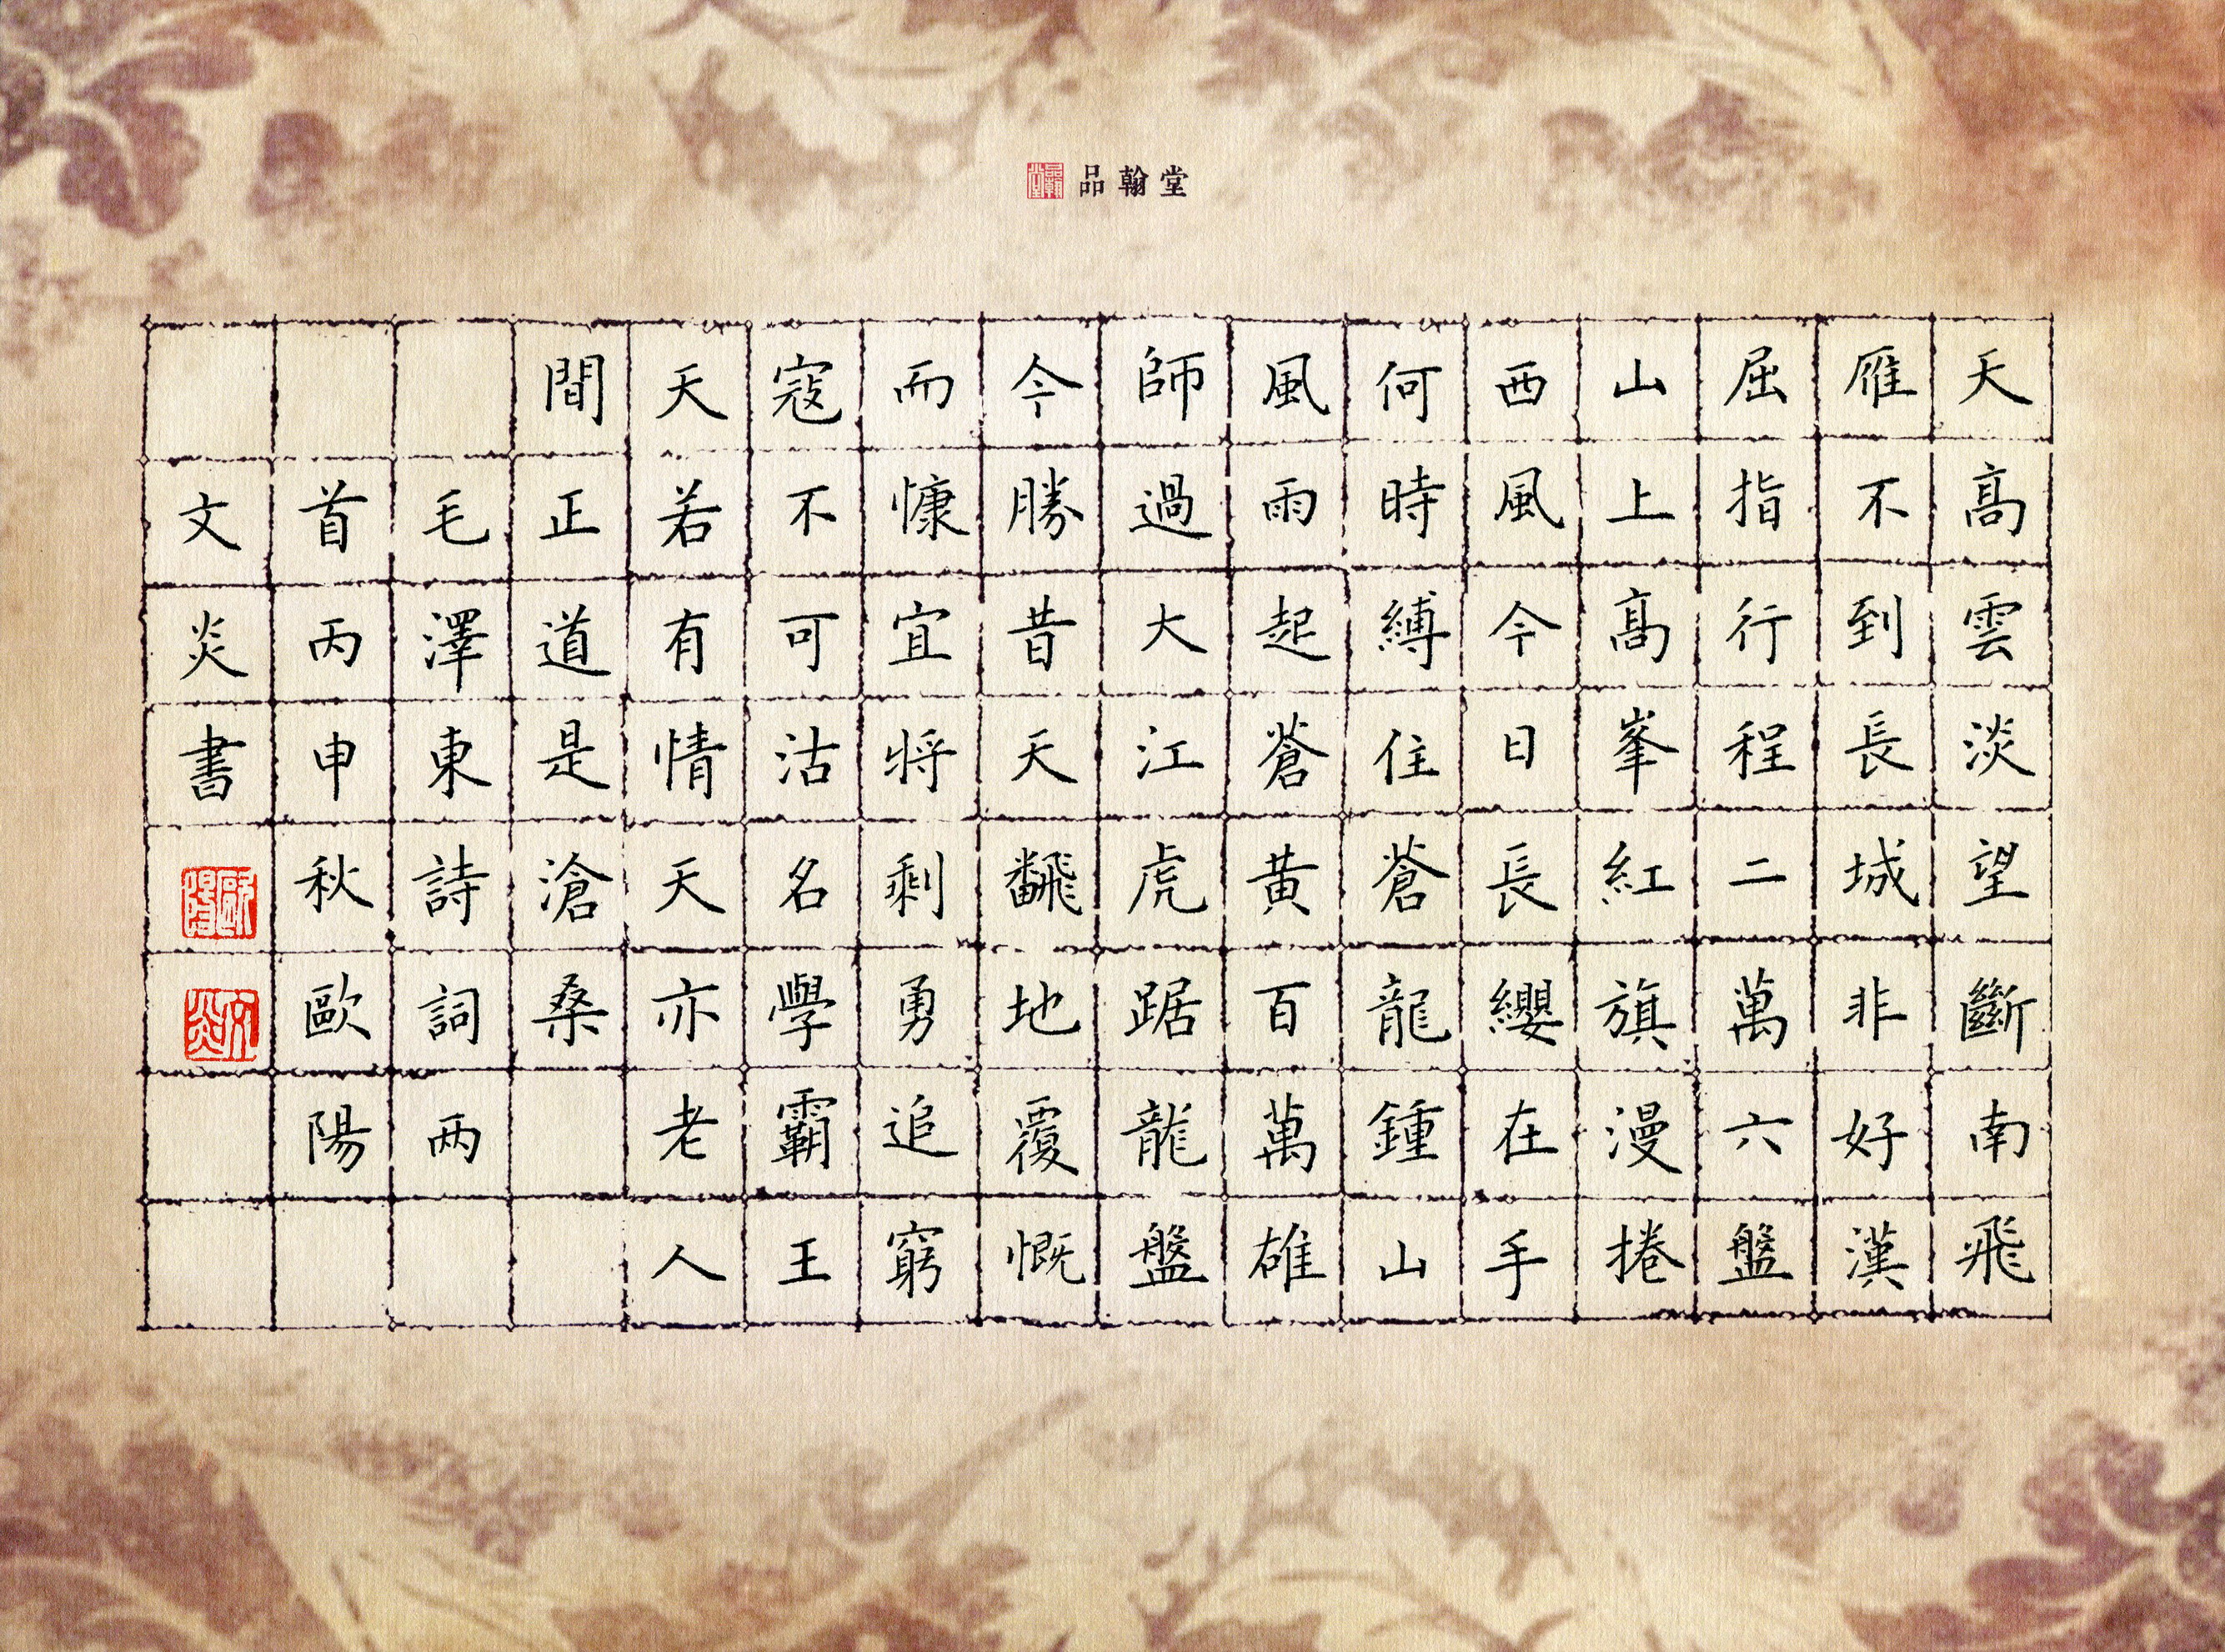 品翰堂
品翰堂
天髙雲淡望斷南飛
雁不到長城非好漢
屈指行程二萬六盤
山上髙峯紅旗漫捲
西風今日長纓在手
何時縛住蒼龍鍾山
風雨起蒼黃百萬雄
師過大江虎踞龍盤
今勝昔天飜地覆慨
而慷宜将剩勇追窮
寇不可沽名學霸王
天若有情天亦老人
間正道是滄桑
毛澤東詩詞两
首丙申秋歐陽
文炎書
歐陽
文炎